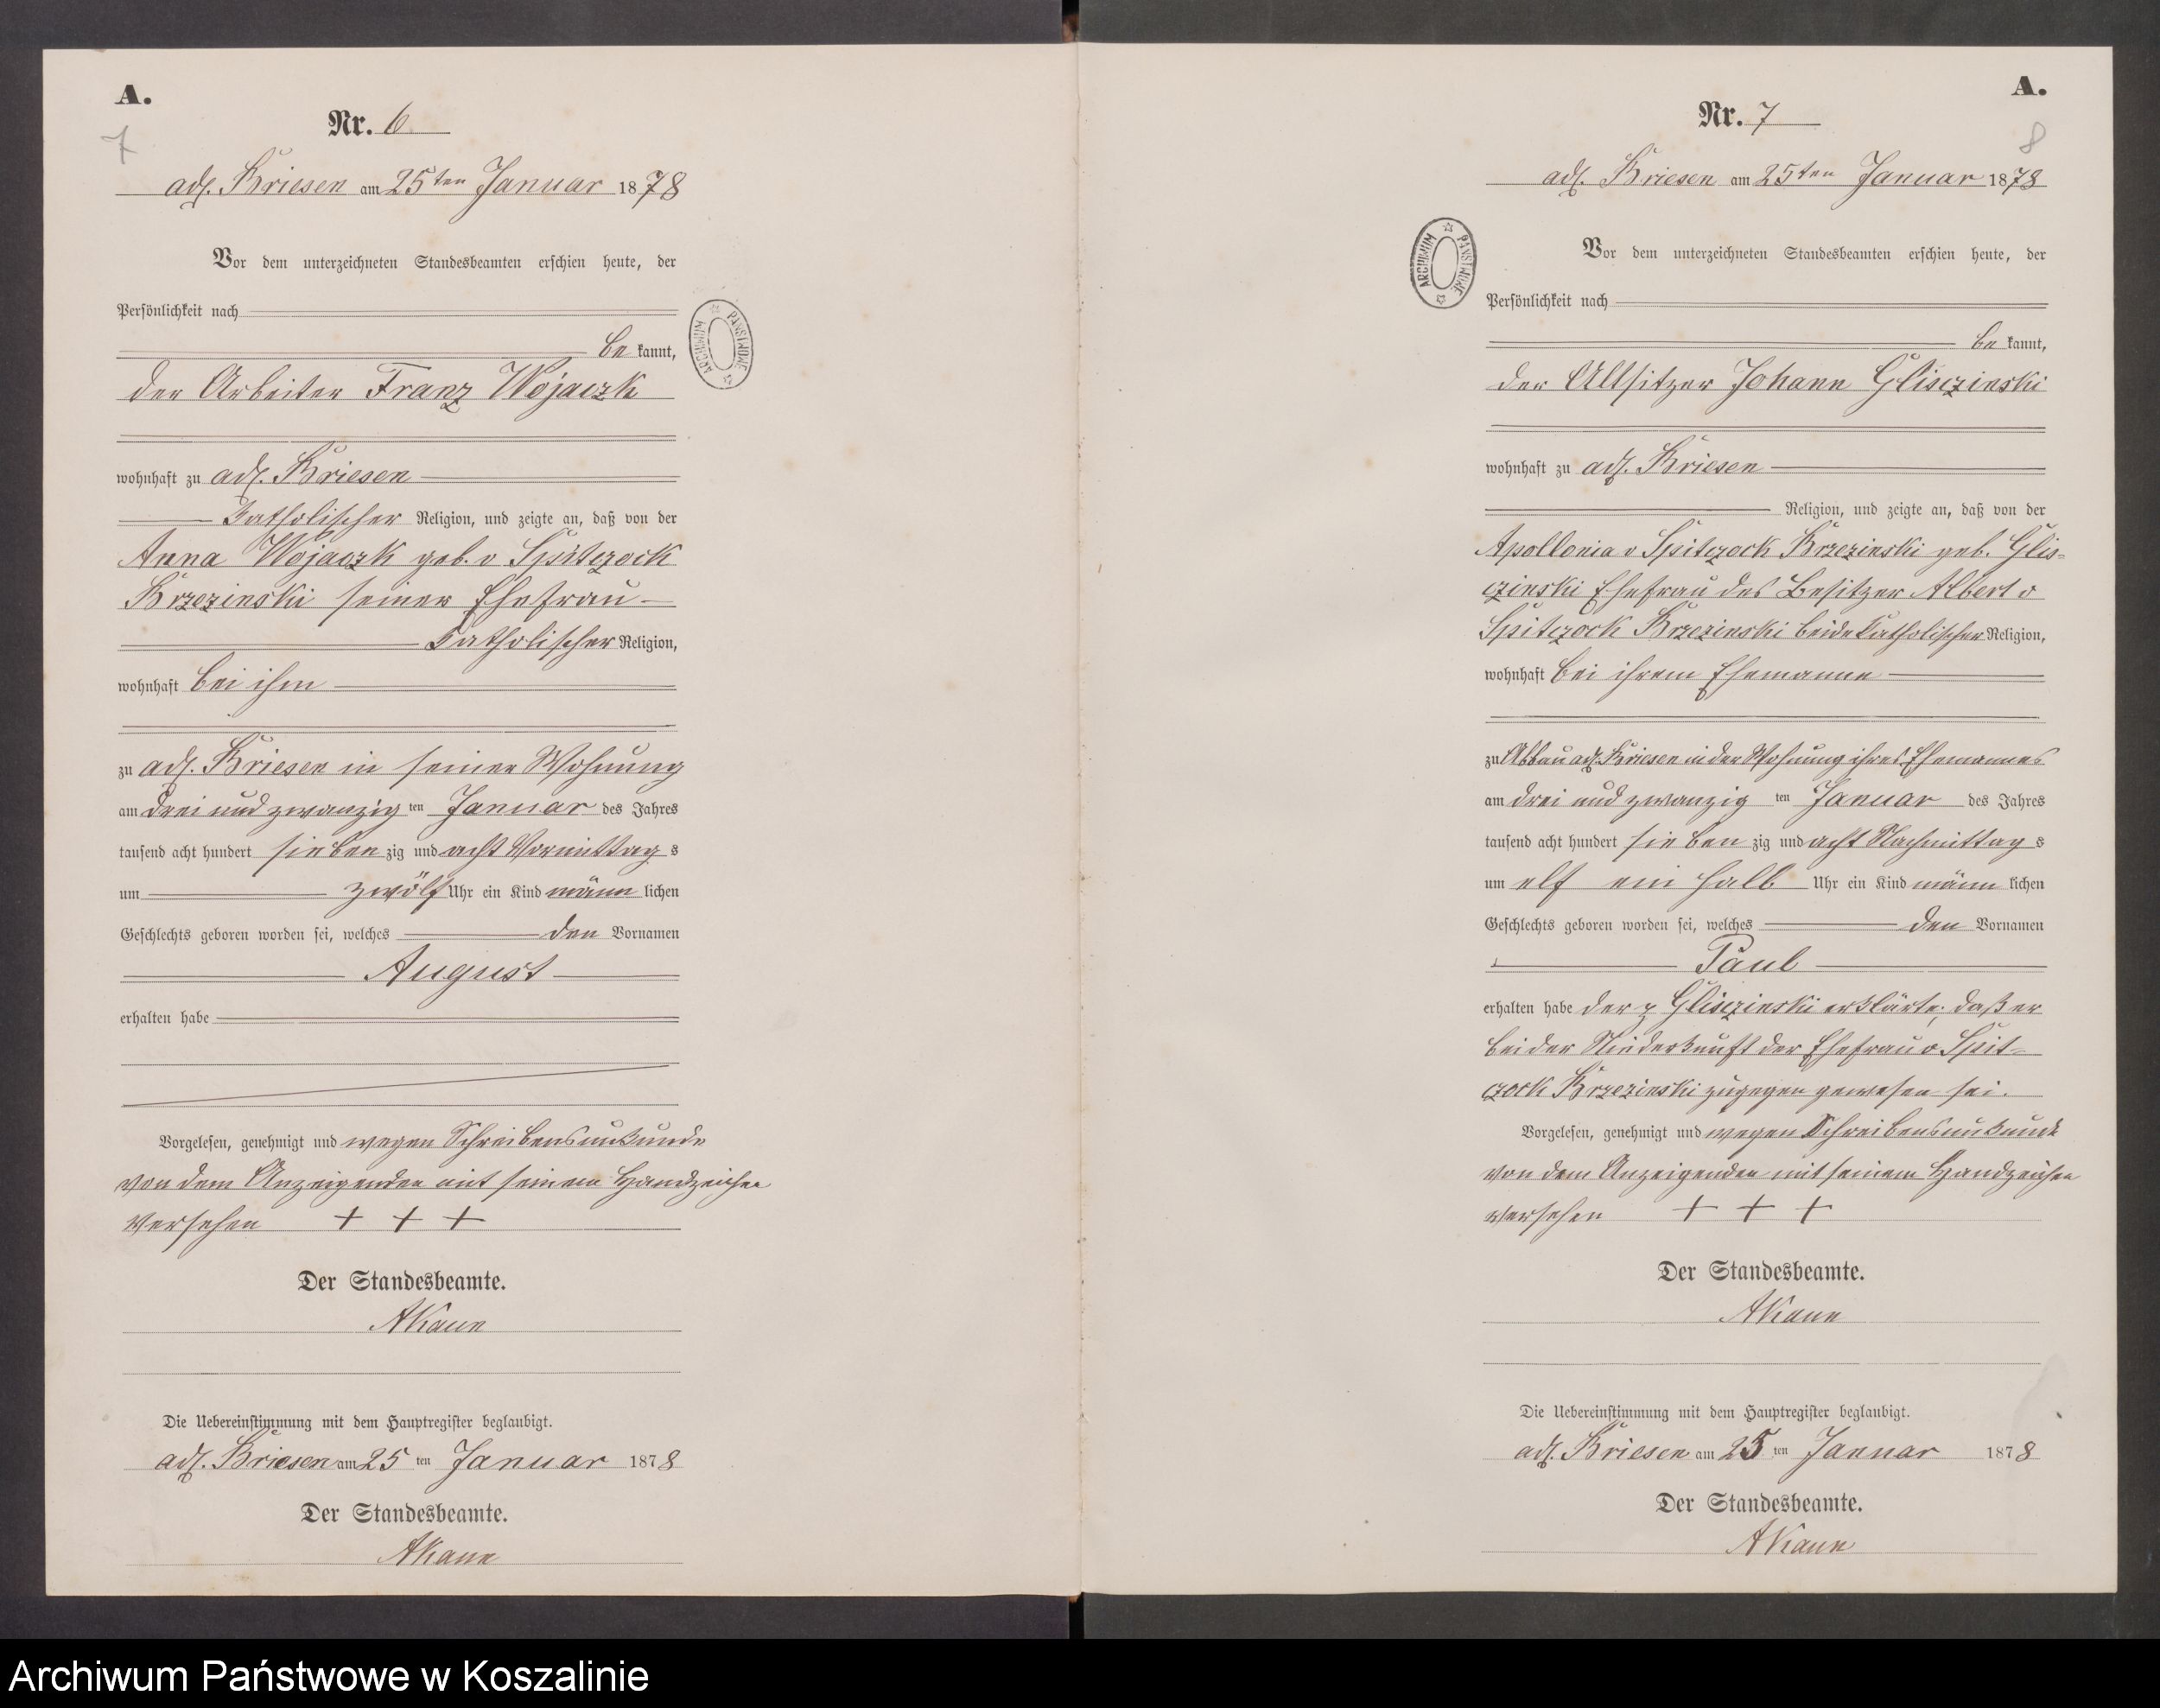 A.
7
Nr. 6
adl. Briesen am 25ten Januar 1878
Vor dem unterzeichneten Standesbeamten erschien heute, der
Persönlichkeit nach
be kannt,
der Arbeiter Franz Wojaczk
wohnhaft zu adl. Briesen
katholischer Religion, und zeigte an, daß von der
Anna Wojaczk geb. v Spitczock
Brzezinski seiner Ehefrau
katholischer Religion,
wohnhaft bei ihm
zu adl. Briesen in seiner Wohnung
am drei und zwanzig ten Januar des Jahres
tausend acht hundert sieben zig und acht Vormittag s
um zwölf Uhr ein Kind männ lichen
Geschlechts geboren worden sei, welches den Vornamen
August
erhalten habe
Vorgelesen, genehmigt und wegen Schreibensunkunde
von dem Anzeigenden mit seinem Handzeichen
versehen + + +
Der Standesbeamte.
AKaun
Die Uebereinstimmung mit dem Hauptregister beglaubigt.
adl. Briesen am 25 ten Januar 1878
Der Standesbeamte.
AKaun
ARCHIWUM PAŃSTWOWE
A.
8
Nr. 7
adl. Briesen am 25ten Januar 1878
Vor dem unterzeichneten Standesbeamten erschien heute, der
Persönlichkeit nach
be kannt,
der Altsitzer Johann Glisczinski
wohnhaft zu adl. Briesen
Religion, und zeigte an, daß von der
Apollonia v Spitczock Brzezinski geb. Glis-
czinski Ehefrau des Besitzer Albert v
Spitczock Brzezinski beide katholischer Religion,
wohnhaft bei ihrem Ehemanne
zu Abbau adl. Briesen in der Wohnung ihres Ehemannes
am drei und zwanzig ten Januar des Jahres
tausend acht hundert sieben zig und acht Nachmittag s
um elf ein halb Uhr ein Kind männ lichen
Geschlechts geboren worden sei, welches den Vornamen
Paul
erhalten habe der p Glisczinski erklärte, daß er
bei der Niederkunft der Ehefrau v Spit-
czock Brzezinski zugegen gewesen sei.
Vorgelesen, genehmigt und wegen Schreibensunkunde
von dem Anzeigenden mit seinem Handzeichen
versehen + + +
Der Standesbeamte.
AKaun
Die Uebereinstimmung mit dem Hauptregister beglaubigt.
adl. Briesen am 25 ten Januar 1878
Der Standesbeamte.
AKaun
ARCHIWUM PAŃSTWOWE
Archiwum Państwowe w Koszalinie